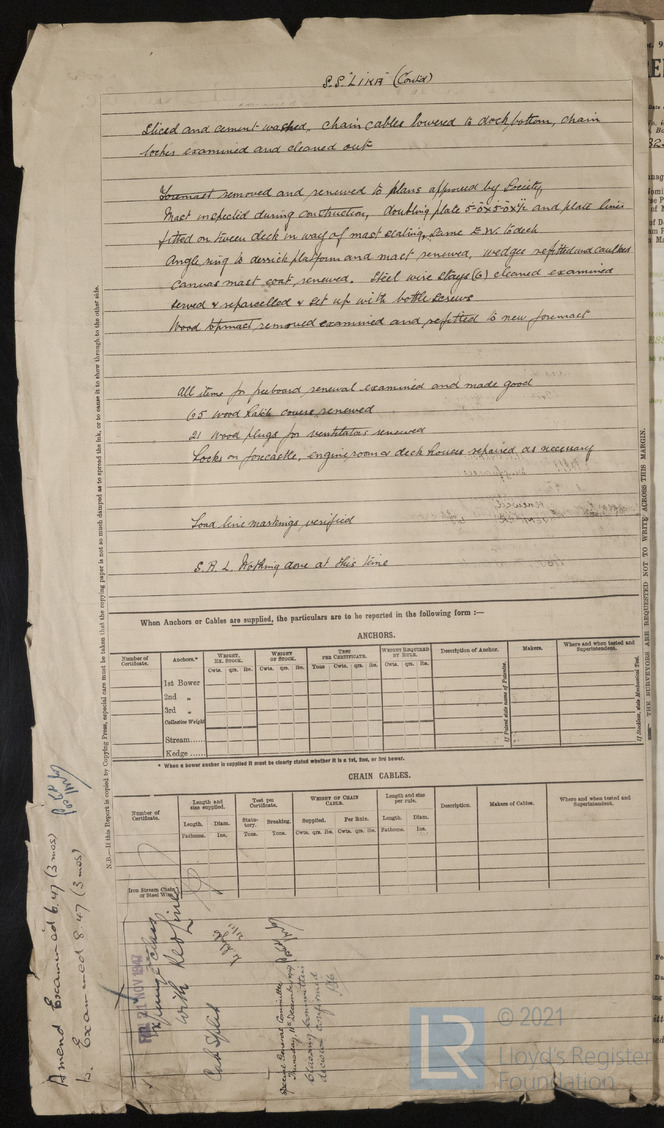 S.S. "LIKA" (Contd)
sliced and cement washed, chain cables lowered to dock bottom, chain
locker examined and cleaned out
Foremast removed and renewed to plans approved by Society
Mast inspected during construction, doubling plate 5'-0"x5'-0"x½" and plate
fitted on tween deck in way of mast scaling, same E.W. to deck
Angle ring to derrick platform and mast renewed, wedges refitted and caulked
Canvas mast coat renewed. Steel wire stays (6) cleaned examined
served & reparcelled & set up with bottle screws
Wood topmast removed examined and refitted to new foremast
All items for freeboard renewal examined and made good
65 wood hatch covers renewed
21 Wood plugs for ventilators renewed
Locks on forecastle, engine room & deck houses repaired as necessary
Load line markings verified
S.R.L. Nothing done at this time
When Anchors or Cables are supplied, the particulars are to be reported in the following form :—
ANCHORS.
Number of Certificate. Anchors.* WEIGHT, EX. STOCK. WEIGHT OF STOCK. TEST PER CERTIFICATE. WEIGHT REQUIRED BY RULE. Description of Anchor. Makers. Where and when tested and Superintendent.
Cwts. qrs. lbs. Cwts. qrs. lbs. Tons Cwts. qrs. lbs. Cwts. qrs. lbs.
1st Bower
2nd „
3rd „
Collective Weight
Stream......
Kedge......
If Patent state name of Patentee.
If Stockless, state Mechanical Test.
* When a bower anchor is supplied it must be clearly stated whether it is a 1st, 2nd, or 3rd bower.
CHAIN CABLES.
Number of Certificate. Length and size supplied. Test per Certificate. WEIGHT OF CHAIN CABLE. Length and size per rule. Description. Makers of Cables. Where and when tested and Superintendent.
Length. Diam. Statutory. Breaking. Supplied. Per Rule. Length. Diam.
Fathoms. Ins. Tons. Tons. Cwts. qrs. lbs. Cwts. qrs. lbs. Fathoms. Ins.
Iron Stream Chain or Steel Wire
N.B.—If this Report is copied by Copying Press, especial care must be taken that the copying paper is not so much damped as to spread the ink, or to cause it to show through to the other side.
THE SURVEYORS ARE REQUESTED NOT TO WRITE ACROSS THIS MARGIN.
Amend Examined 6.47 (3 mos)
to Examined 8.47 (3 mos)
FRI. 21 NOV 1947
Expunge class
with Red Line
Special General Committee
Thursday, 11th December 1947
Classing Committee's
decision confirmed
© 2021
Lloyd's Register
Foundation
LR